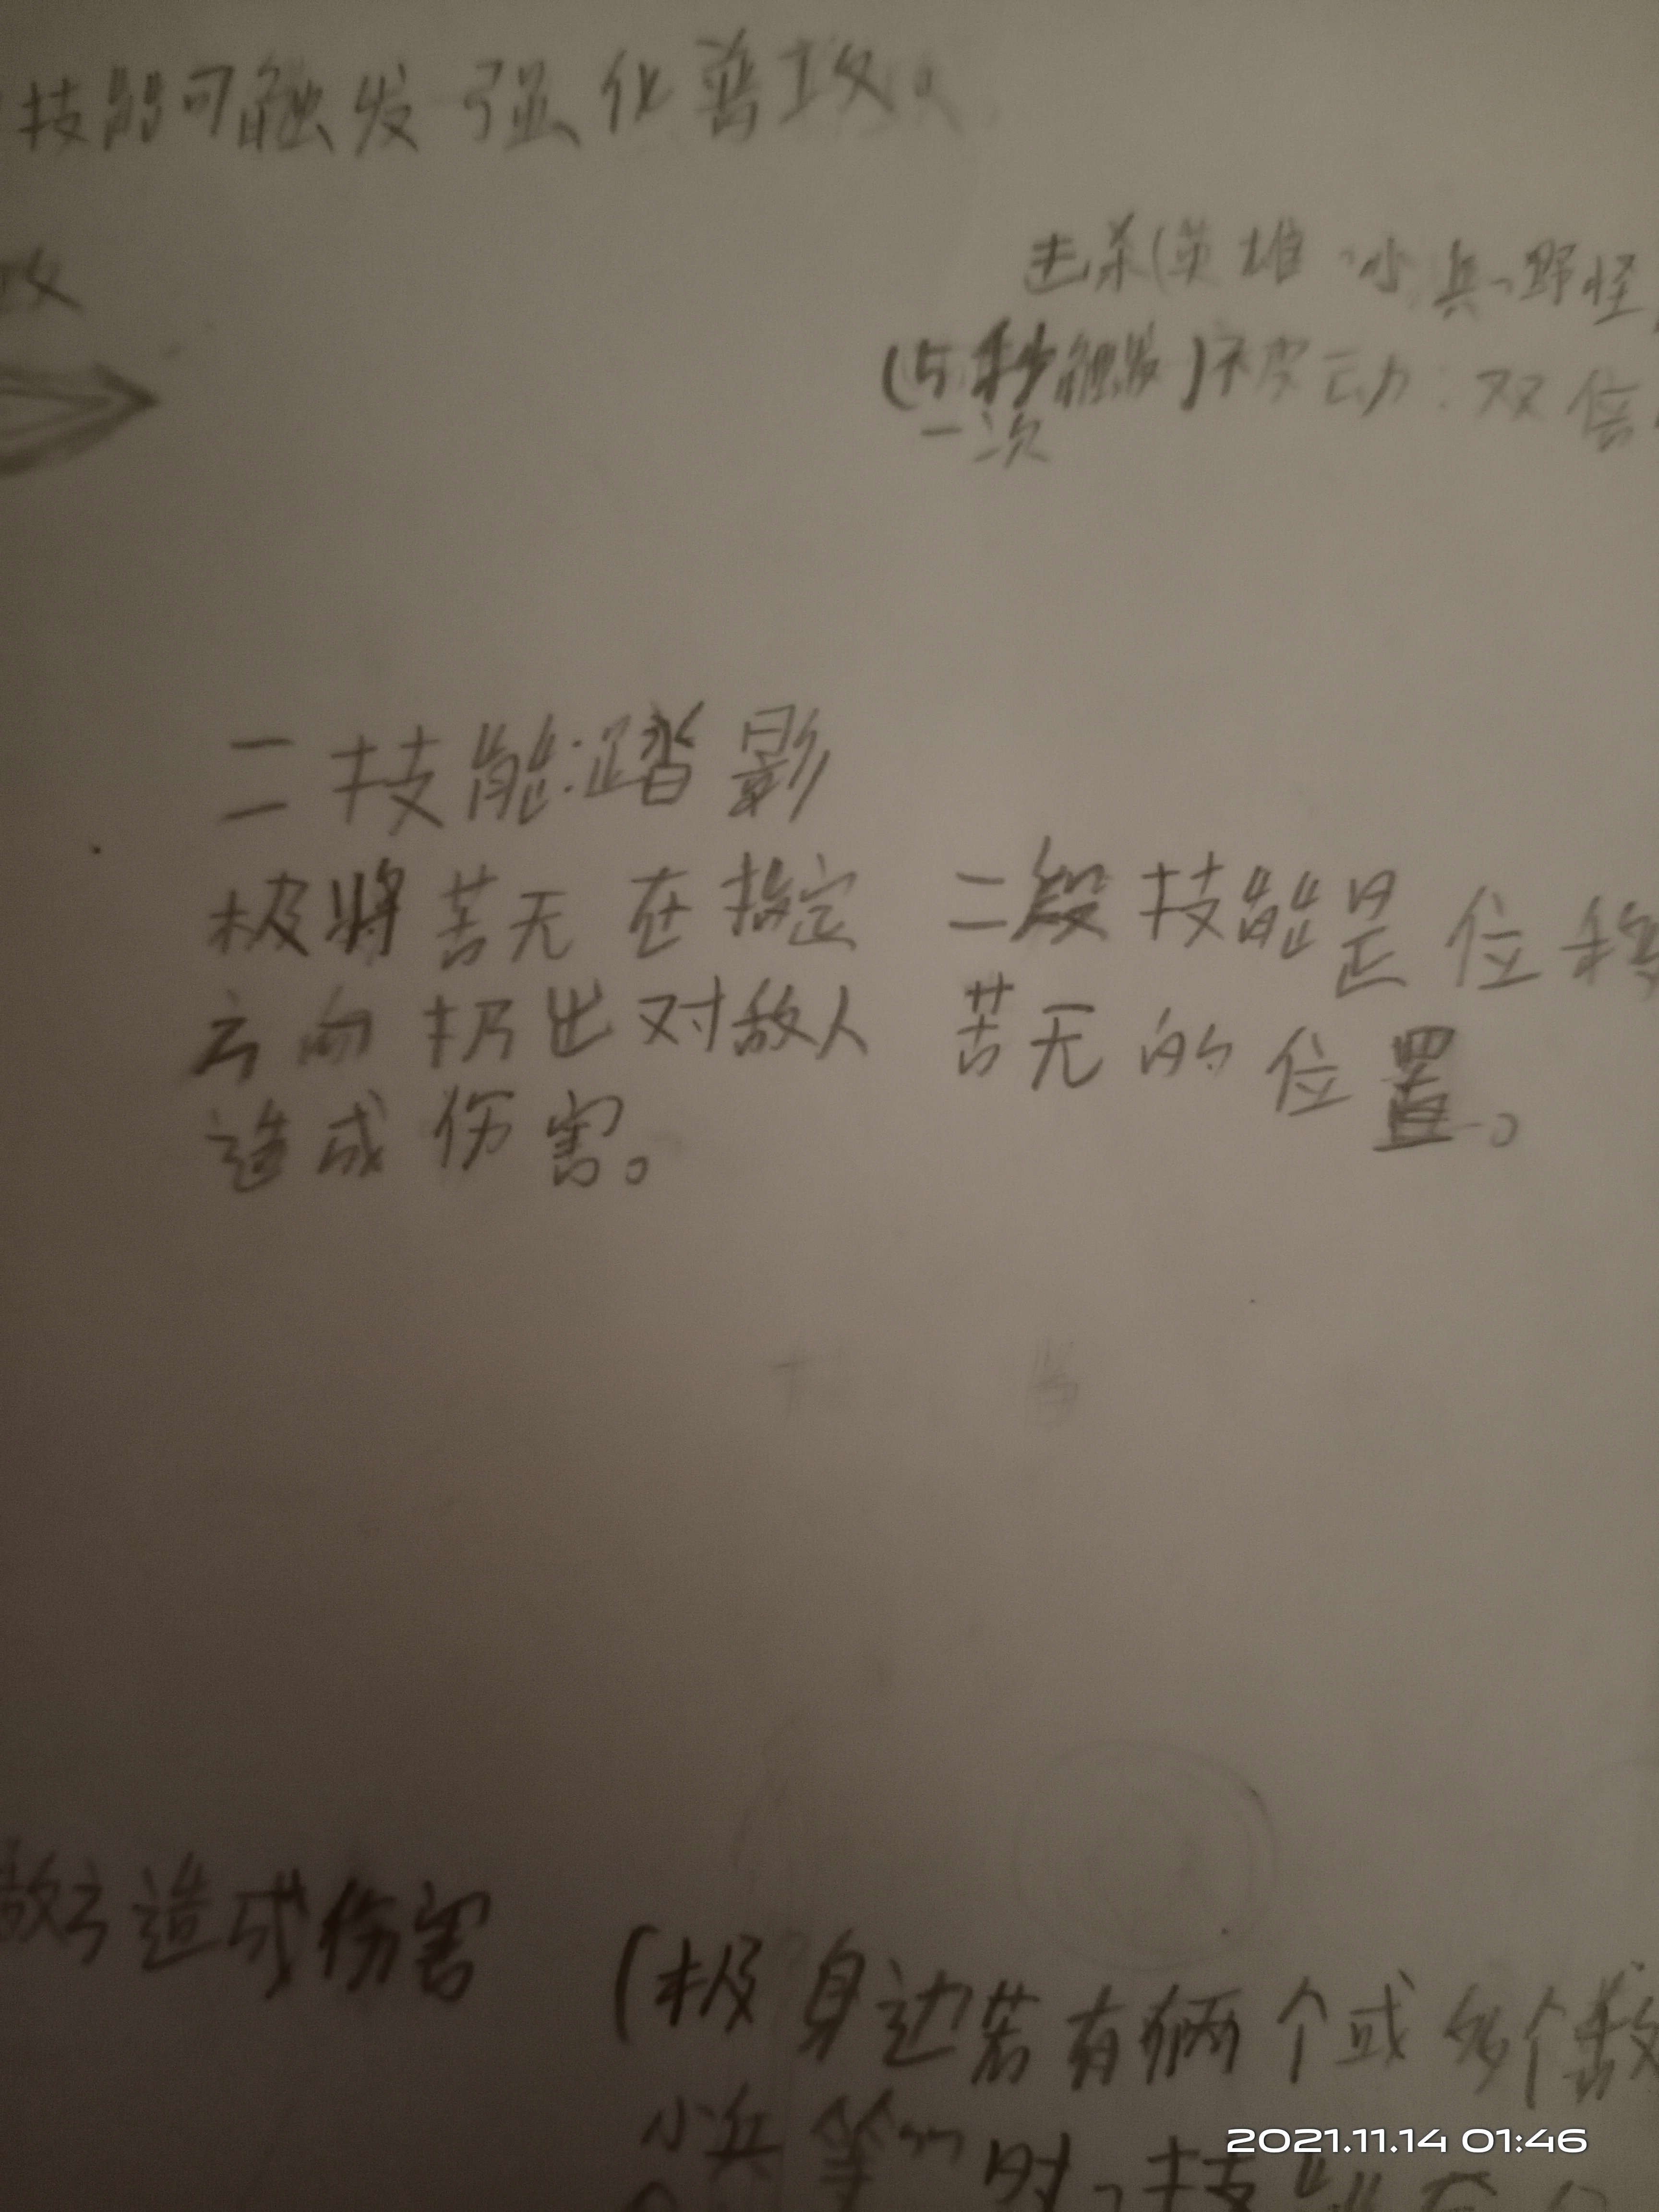 技能可触发强化普攻。
攻
击杀(英雄、小兵、野怪
(5秒触发)被动:双倍
一次
二技能:踏影
极将苦无在指定
方向扔出对敌人
造成伤害。
二段技能是位移
苦无的位置。
敌方造成伤害
(极身边若有俩个或多个敌
小兵等")时、技能
2021.11.14 01:46